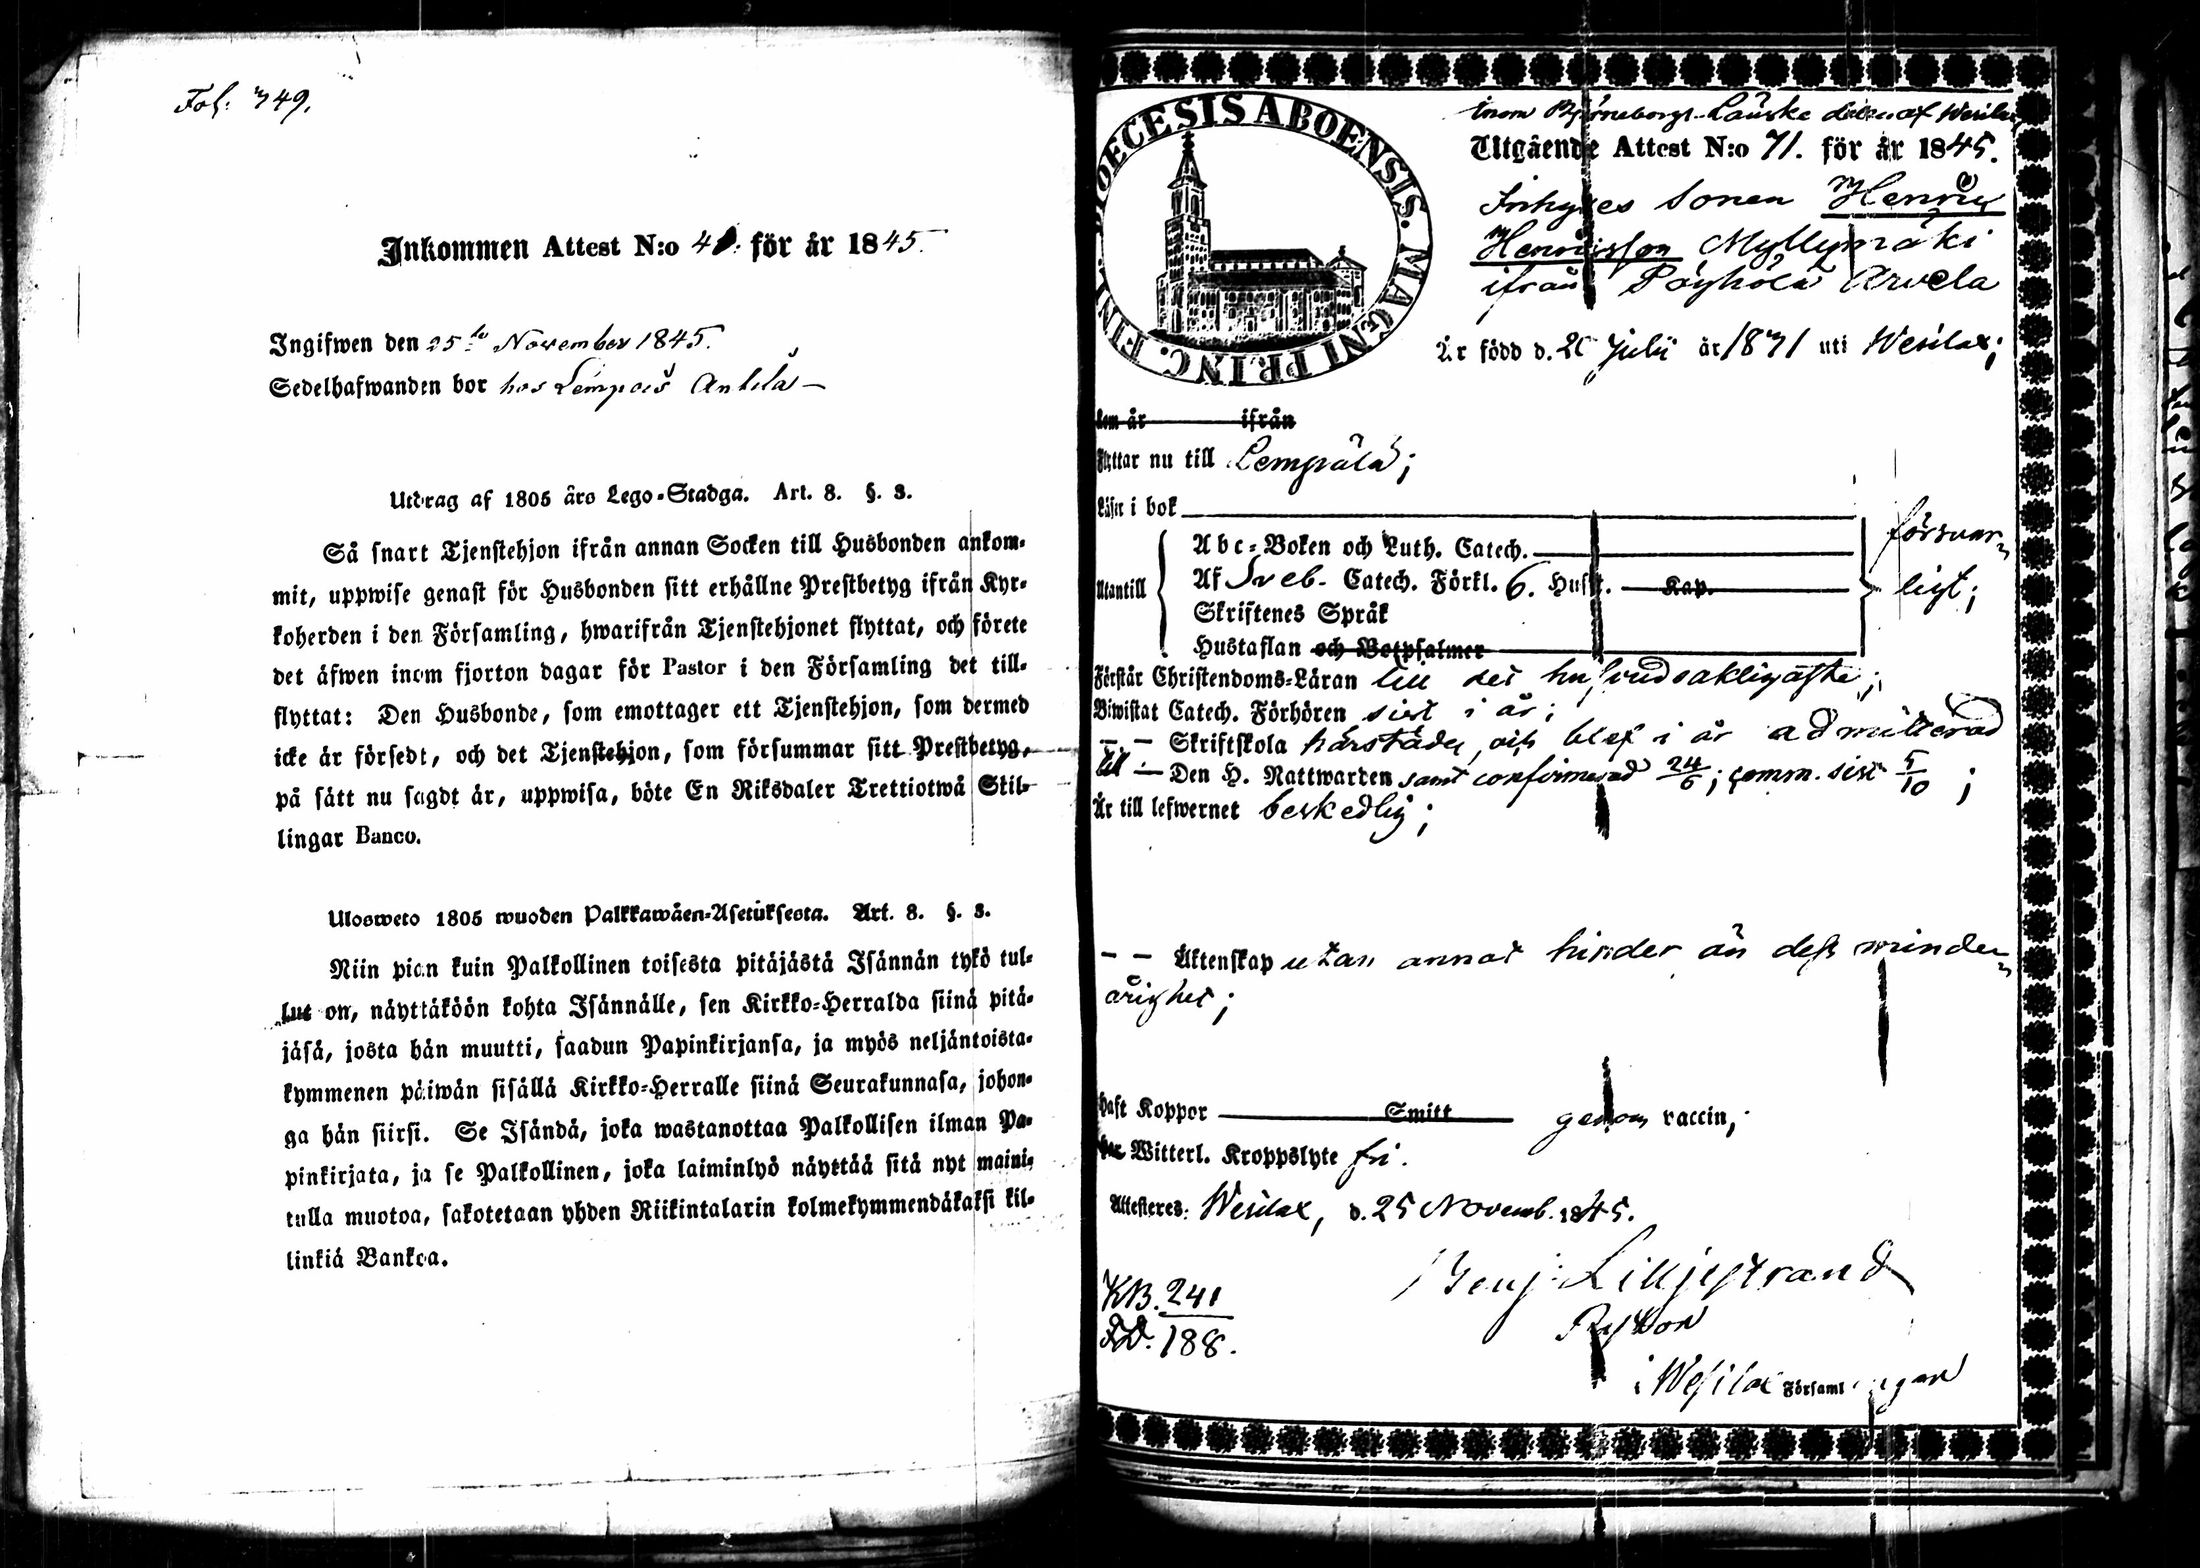 Fol: 749.
Inkommen Attest N:o 41. för år 1845.
Ingifwen den 25te November 1845.
Sedelhafwanden bor hos Lempois Anttila
Utdrag af 1805 års Lego-Stadga. Art. 8. §. 3.
Så snart Tjenstehjon ifrån annan Socken till Husbonden ankom-
mit, uppwise genast för Husbonden sitt erhållne Prestbetyg ifrån Kyr-
koherden i den Församling, hwarifrån Tjenstehjonet flyttat, och förete
det äfwen inom fjorton dagar för Pastor i den Församling det till-
flyttat: Den Husbonde, som emottager ett Tjenstehjon, som dermed
icke är försedt, och det Tjenstehjon, som försummar sitt Prestbetyg,
på sätt nu sagdt är, uppwisa, böte En Riksdaler Trettiotwå Skil-
lingar Banco.
Ulosweto 1805 wuoden Palkkawäen-Asetuksesta. Art. 8. §. 3.
Niin pian kuin Palkollinen toisesta pitäjästä Isännän tykö tul-
lut on, näyttäköön kohta Isännälle, sen Kirkko-Herralda siinä pitä-
jäsä, josta hän muutti, saadun Papinkirjansa, ja myös neljäntoista-
kymmenen päiwän sisällä Kirkko-Herralle siinä Seurakunnasa, johon-
ga hän siirsi. Se Isändä, joka wastanottaa Palkollisen ilman Pa-
pinkirjata, ja se Palkollinen, joka laiminlyö näyttää sitä nyt maini-
tulla muotoa, sakotetaan yhden Riikintalarin kolmekymmendäkaksi kil-
linkiä Bankoa.
DIOECESIS ABOENSIS. MAGNI PRINC. FINL.
inom Björneborgs Läuske delen af Wesilax
Utgående Attest N:o 71. för år 1845.
Inhyses Sonen Henric
Henricsson Myllymäki
ifrån Pöyhölä Arvela
Är född d. 20 Julii år 1831 uti Wesilax;
kom år ifrån
Flyttar nu till Lempälä;
Läser i bok
försvar-
Abc-Boken och Luth. Catech.
Utantill
Af Sveb. Catech. Förkl. 6. Hufst. Kap.
ligt;
Skriftenes Språk
Hustaflan och Botpsalmer
Förstår Christendoms-Läran till det hufvudsakligaste;
Biwistat Catech. Förhören sist i år;
— — Skriftskola härstädes, och blef i år admitterad
till — Den H. Nattwarden samt confirmerad 24/6; comm. sist 5/10;
Är till lefwernet beskedlig;
— — Äktenskap utan annat hinder än dess minder-
årighet;
Haft Koppor Smitt genom vaccin;
Witterl. Kroppslyte fri.
Attesteres: Wesilax, d. 25 Novemb. 1845.
Benj. Lilljestrand
Pastor
i Wesilax Församlingar
KB. 241
188.